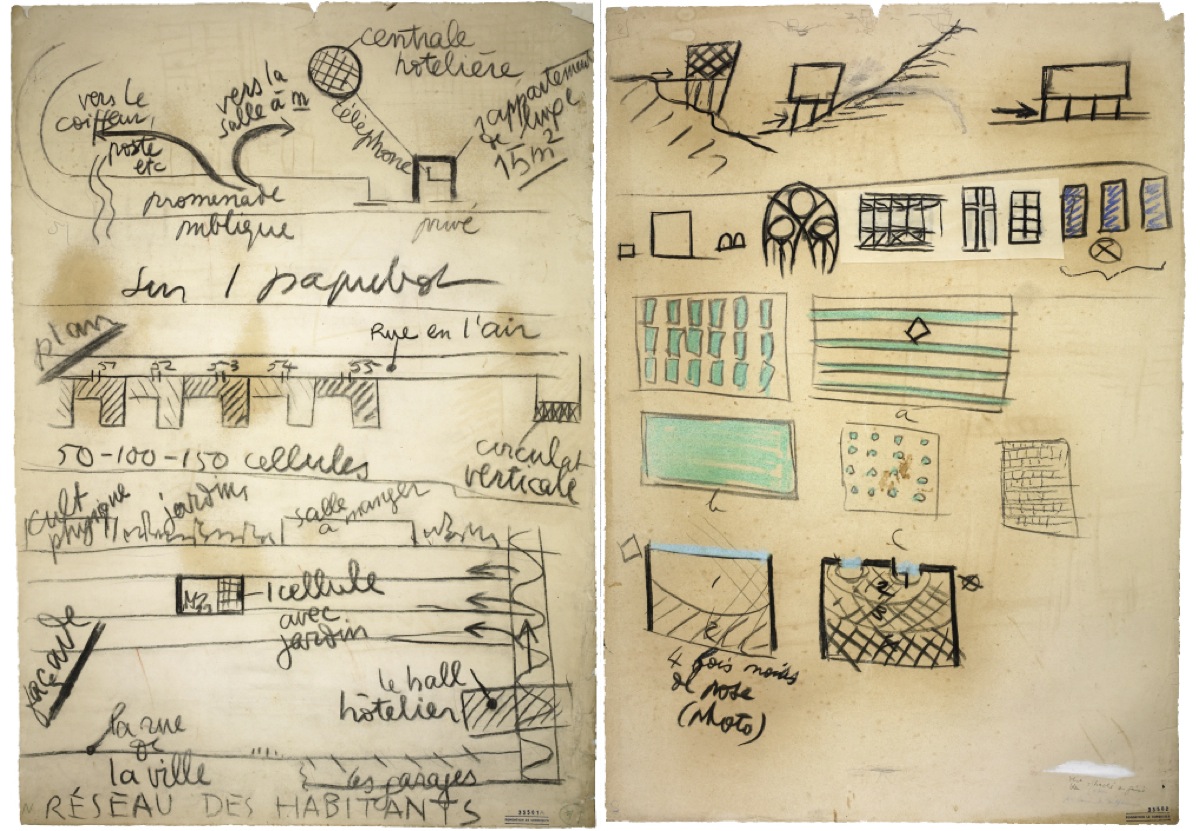 centrale
hôtelière
vers le
coiffeur,
poste
etc
vers la
salle à m
téléphone
1 appartement
de luxe
15 m²
promenade
publique
privé
Sur 1 paquebot
plan
Rue en l'air
51 52 53 54 55
50-100-150 cellules
circulat
verticale
cult
physique
jardins
salle
à manger
1 cellule
avec
jardin
M2
façade
le hall
hôtelier
la rue
de
la ville
les garages
RÉSEAU DES HABITANTS
a
b
c
1
2
1
2
3
4
4 fois moins
de pose
(photo)